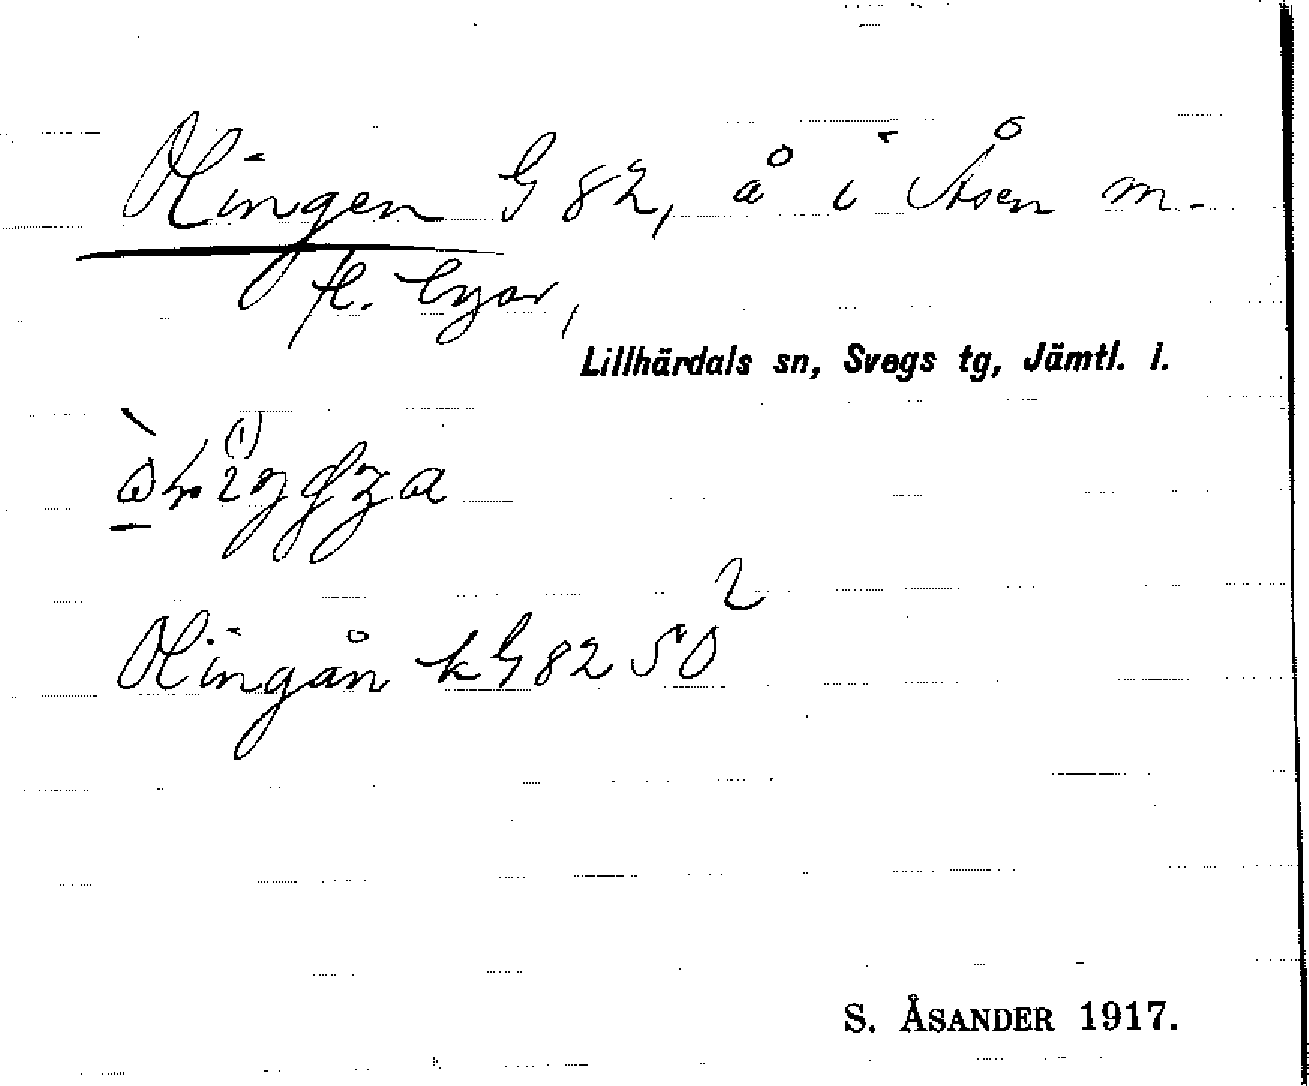 Olingen G 82, å i Åsen m.
fl. byar,
Lillhärdals sn, Svegs tg, Jämtl. l.
Olingån kG 82 50²
S. ÅSANDER 1917.